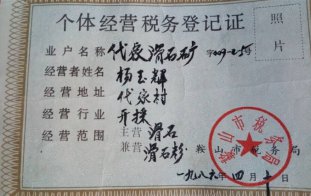 个体经营税务登记证
照片
业户名称 代家滑石矿
经营者姓名 杨玉辉
经营地址 代家村
经营行业 开採
经营范围 主营 滑石
兼营 滑石粉
鞍山市税务局
一九八六年四月十日